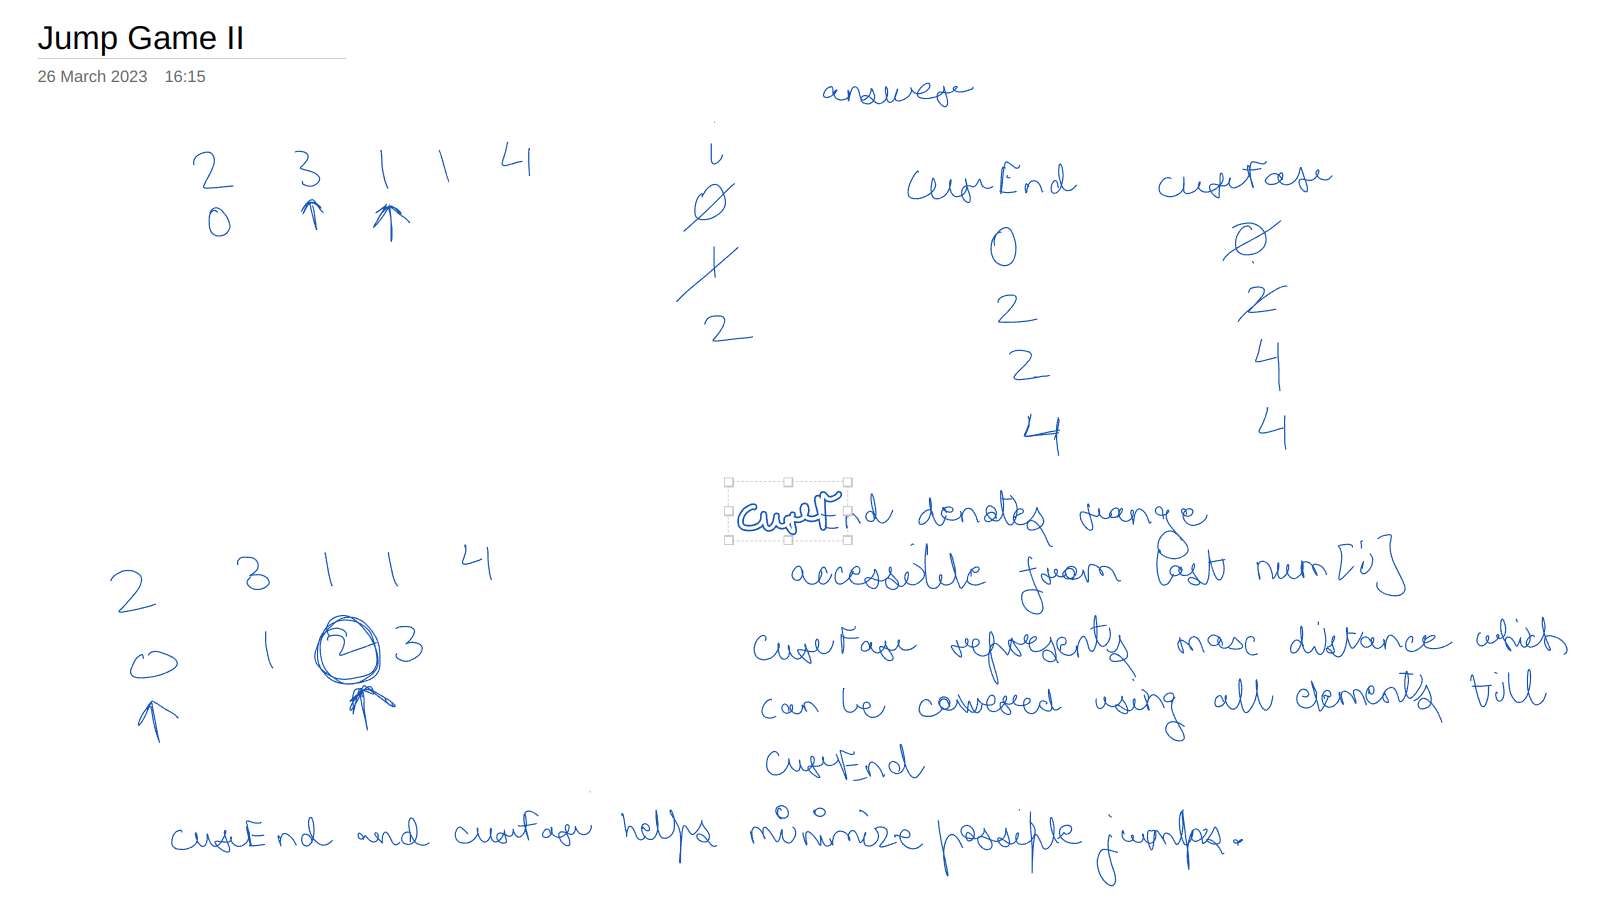 Jump Game II
26 March 2023 16:15
answer
2 3 1 1 4
0
i currEnd currFar
0 0 0
1 2 2
2 2 4
4 4
currEnd denotes range
accessible from last num[i]
2 3 1 1 4
0 1 2 3
currFar represents max distance which
can be covered using all elements till
currEnd
currEnd and currFar helps minimize possible jumps.